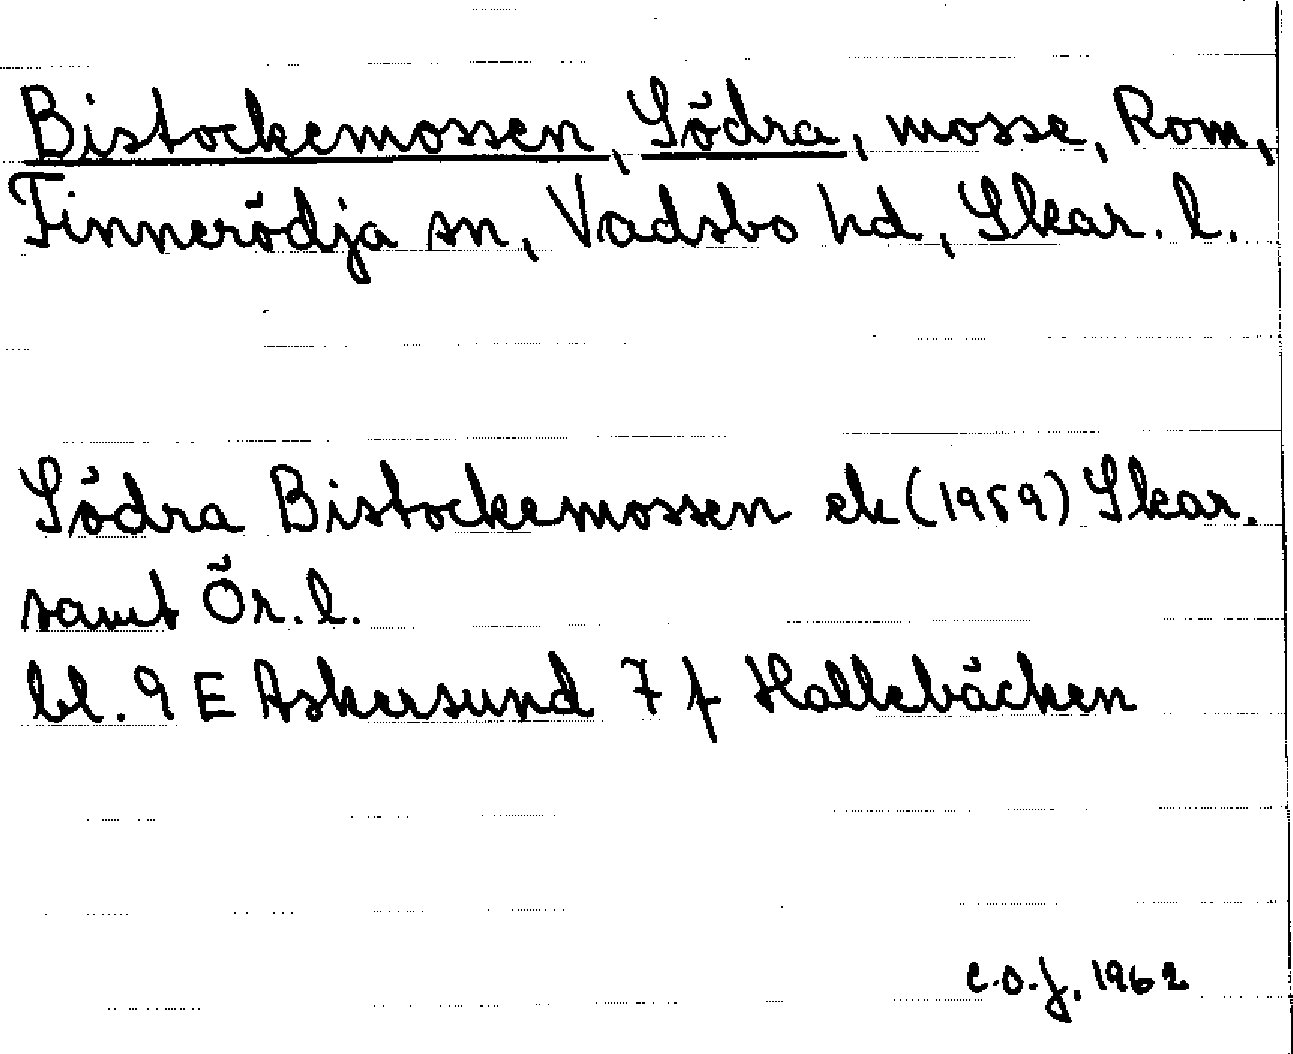 Bistockemossen, Södra, mosse, Rom,
Finnerödja sn, Vadsbo hd, Skar. l.
Södra Bistockemossen ek (1959) Skar.
samt Ör. l.
bl. 9 E Askersund 7 f Hallebäcken
C.O.J. 1962